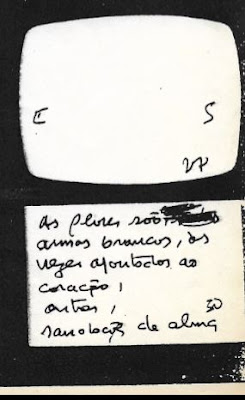 E S
VP
As flores são
armas brancas, às
vezes apontadas ao
coração,
outras, 30
da alma